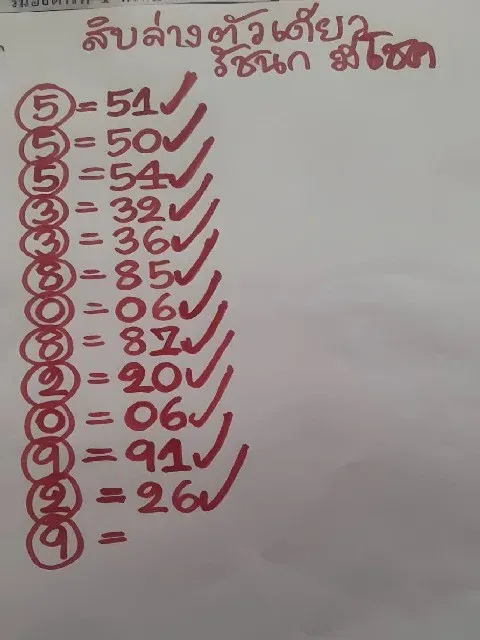 สิบล่างตัวเดียว
รัชนก มีโชค
5 = 51✓
5 = 50✓
5 = 54✓
3 = 32✓
3 = 36✓
8 = 85✓
0 = 06✓
8 = 87✓
2 = 20✓
0 = 06✓
9 = 91✓
2 = 26✓
9 =